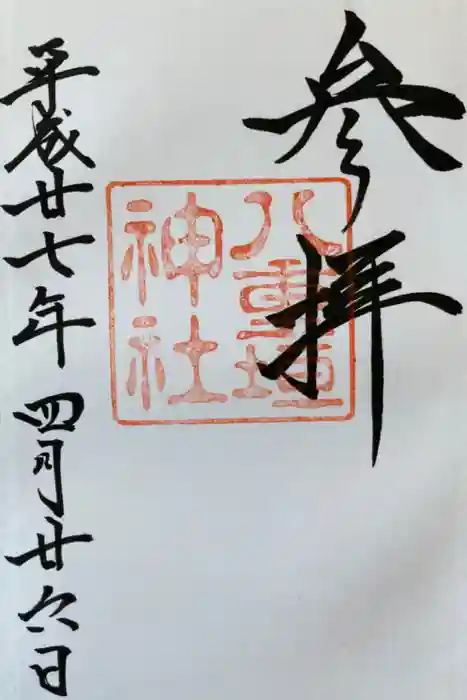 参拝
八重垣
神社
平成廿七年 四月廿六日